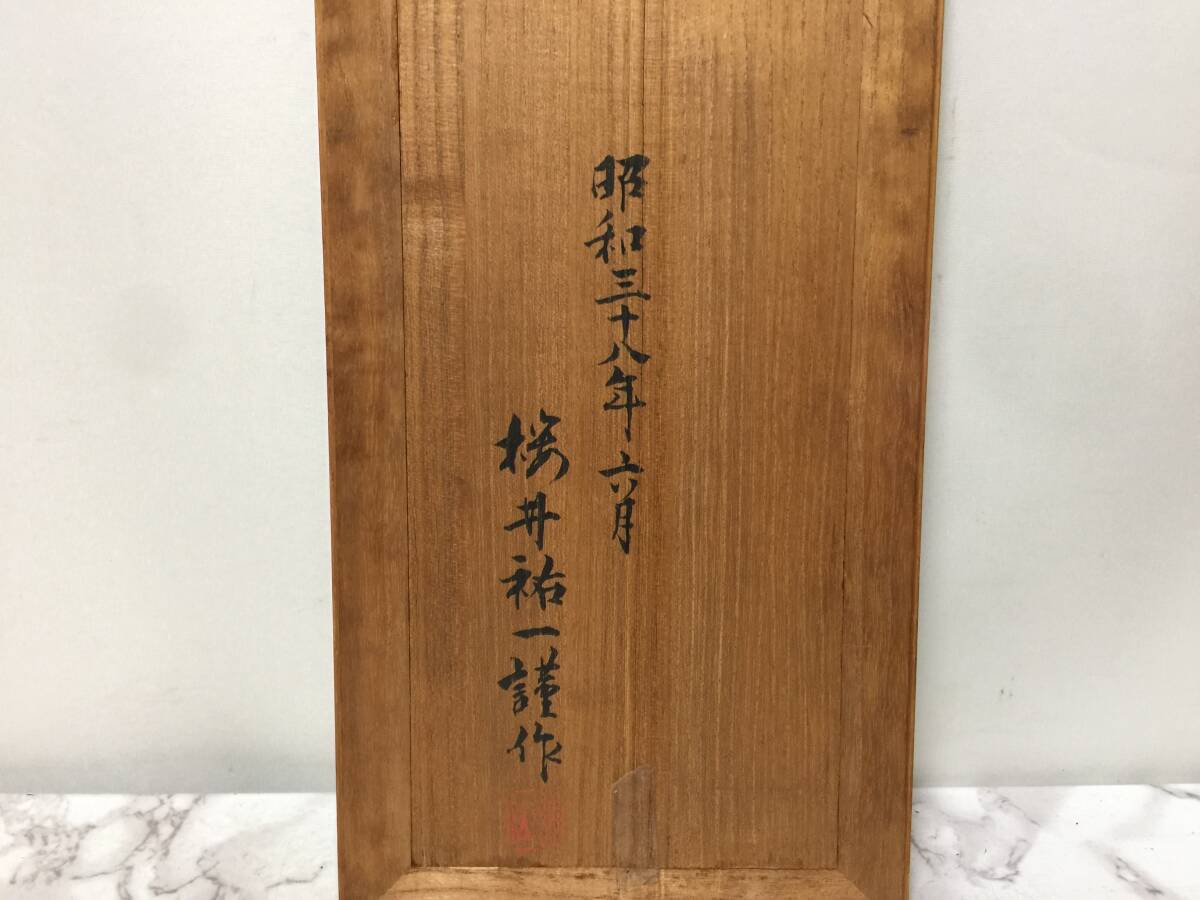 昭和三十八年六月
桜井祐一謹作